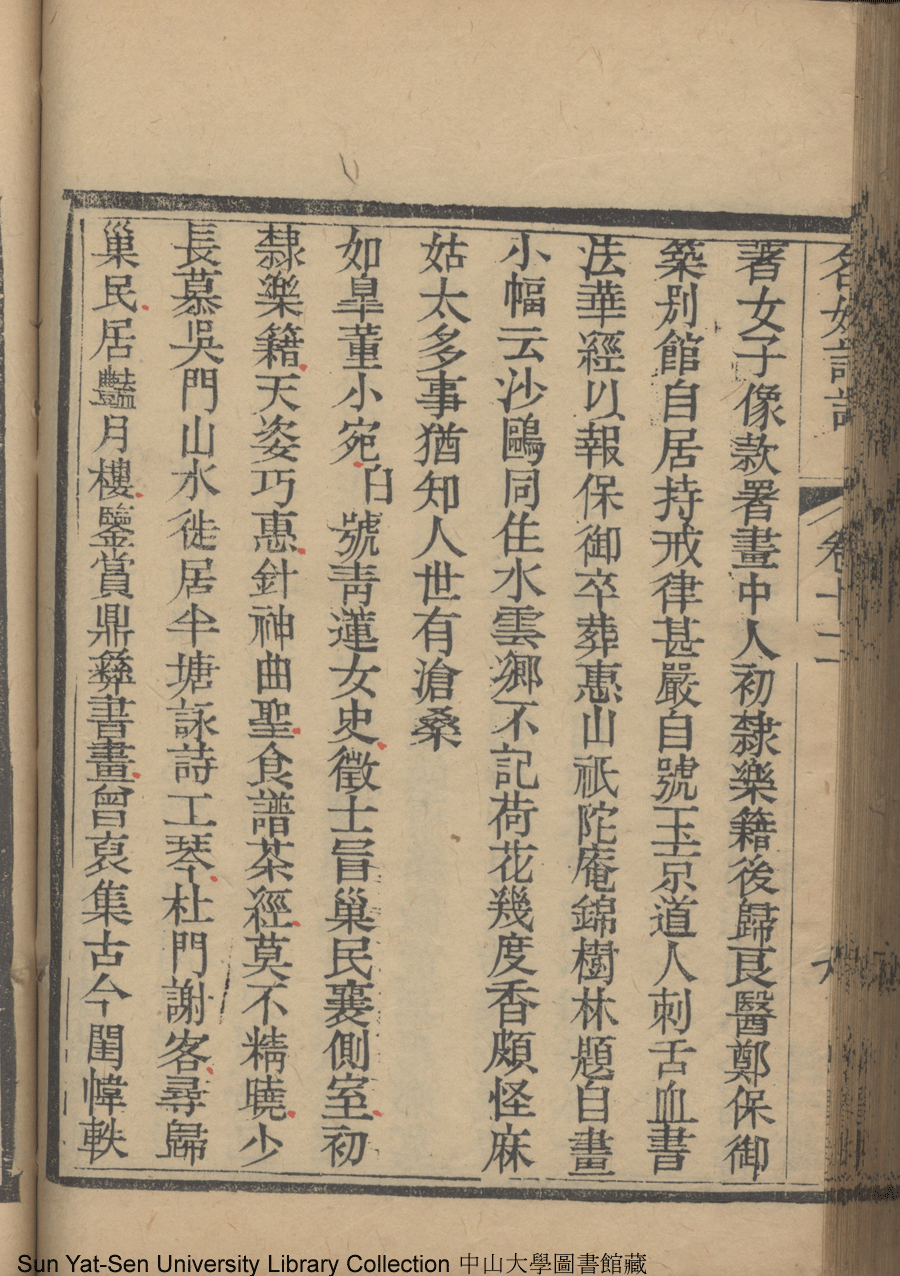 名媛詩話 卷十二 六
著女子像款署畫中人初隸樂籍後歸良醫鄭保御
築別館自居持戒律甚嚴自號玉京道人刺舌血書
法華經以報保御卒葬惠山祇陀庵錦樹林題自畫
小幅云沙鷗同住水雲鄉不記荷花幾度香頗怪麻
姑太多事猶知人世有滄桑
如皐董小宛白號靑蓮女史徵士冒巢民襄側室初
隸樂籍天姿巧惠針神曲聖食譜茶經莫不精曉少
長慕吳門山水徙居半塘詠詩工琴杜門謝客尋歸
巢民居豔月樓鑒賞鼎彝書畫曾裒集古今閨幃軼
Sun Yat-Sen University Library Collection 中山大學圖書館藏